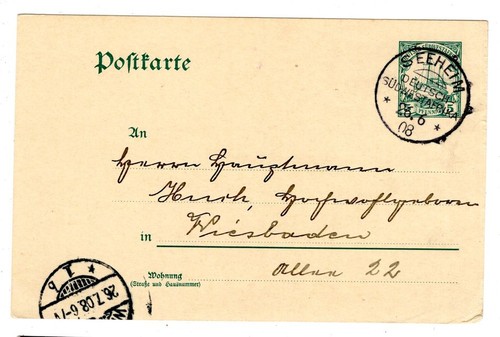 Postkarte
SEEHEIM
DEUTSCH-
SÜDWESTAFRIKA
6
08
An
Herrn Hauptmann
Hochwohlgeboren
in Wiesbaden
Allee 22
Wohnung
(Straße und Hausnummer)
* 1 b
26.7.08.6-7V